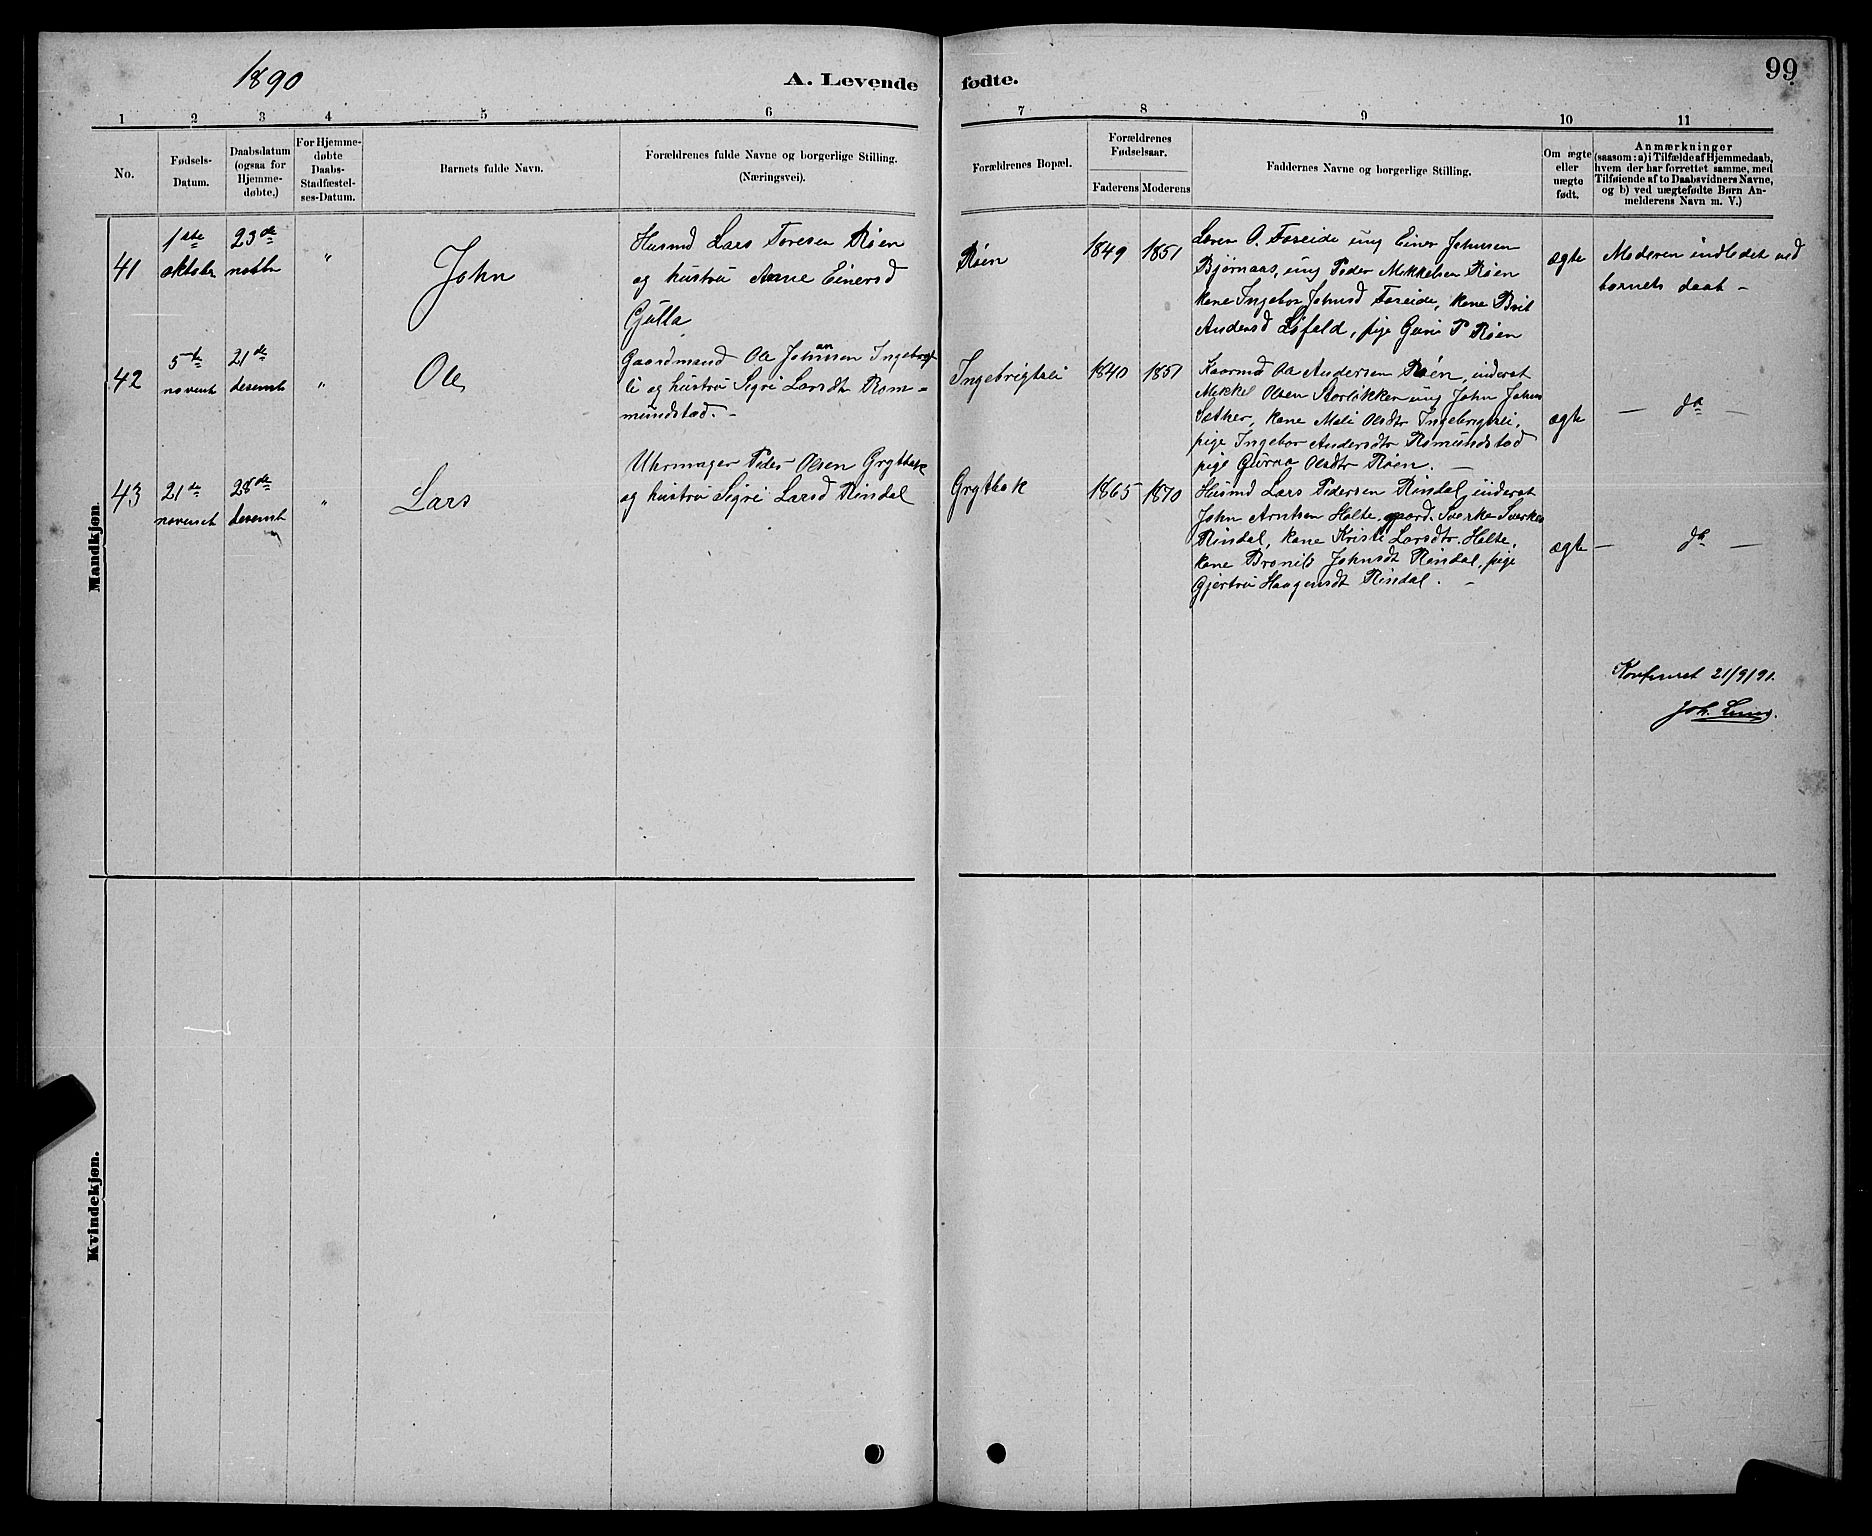 1890
A. Levende fødte.
99
1 2 3 4 5 6 7 8 9 10 11
No.
Fødsels-
Datum.
Daabsdatum
(ogsaa for
Hjemme-
døbte.)
For Hjemme-
døbte
Daabs-
Stadfæstel-
ses-Datum.
Barnets fulde Navn.
Forældrenes fulde Navne og borgerlige Stilling.
(Næringsvei).
Forældrenes Bopæl.
Forældrenes
Fødselsaar.
Faderens Moderens
Faddernes Navne og borgerlige Stilling.
Om ægte
eller
uægte
født.
Anmærkninger
(saasom: a) i Tilfælde af Hjemmedaab,
hvem der har forrettet samme, med
Tilføiende af to Daabsvidners Navne,
og b) ved uægtefødte Børn An-
melderens Navn m. V.)
Mandkjøn.
41
1ste
oktober
23de
novbr
"
John
Husmd Lars Toresen Røen
og hustru Anne Einersd
Gulla
Røen
1849
1851
Loren O. Foseide ung Einer Johnsen
Bjørnaas, ung Peder Mikkelsen Røen
kone Ingebor Johnsd Foseide, kone Brit
Andersd Løfald, pige Guri P Røen
ægte
Moderen indledet ved
barnets daab -
42
5te
novemb
21de
desemb
"
Ole
Gaardmand Ole Johnsen Ingebrigt
li og hustru Sigri Larsdt Rom-
mundstad. -
Ingebrigtsli
1840
1851
Kaarmd Ole Andersen Røen, inderst
Mikkel Olsen Aarløkken ung John Johns
Sæther, kone Mali Olsdtr Ingebrigtsli,
pige Ingebor Andersdtr Romundstad
pige Guruo Olsdtr Røen. -
ægte
- do -
43
21de
novemb
28de
desemb
"
Lars
Uhrmager Peder Olsen Grytbak
og hustru Sigri Larsd Rindal
Grytbak
1865
1870
Husmd Lars Pedersen Rindal, inderst
John Arntsen Holte, gaard. Sverke Sverkes
Rindal, kone Kristi Larsdtr. Holte,
kone Bronild Johnsdt Rindal, pige
Gjertru Haagensdt Rindal. -
ægte
- do -
Konfereret 21/9/91.
Joh.
Kvindekjøn.